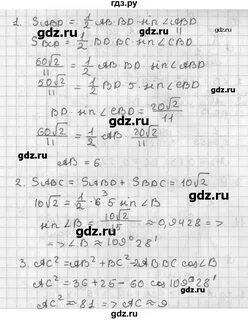 гдз.ру
1. S_ABD = 1/2 AB·BD·sin∠ABD
S_BCD = 1/2 BD·BC·sin∠CBD
60√2/11 = 1/2 AB·BD·sin∠ABD
50√2/11 = 1/2 BD·5·sin∠CBD
BD·sin∠CBD = 20√2/11
60√2/11 = 1/2 AB · 20√2/11
AB = 6
2. S_ABC = S_ABD + S_BDC = 10√2
10√2 = 1/2 · 6·5 sin∠B
sin∠B = 10√2/15 ≈ 0,9428 =>
=> ∠B ≈ 109° 28'
3. AC² = AB² + BC² - 2AB·BC cos∠B
AC² = 36 + 25 - 60 cos 109° 28'
AC² ≈ 81 => AC ≈ 9
gdz.top